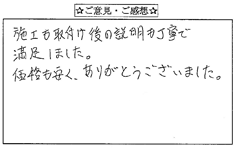 ☆ご意見・ご感想☆
施工も取付け後の説明も丁寧で
満足しました。
価格も安く、ありがとうございました。